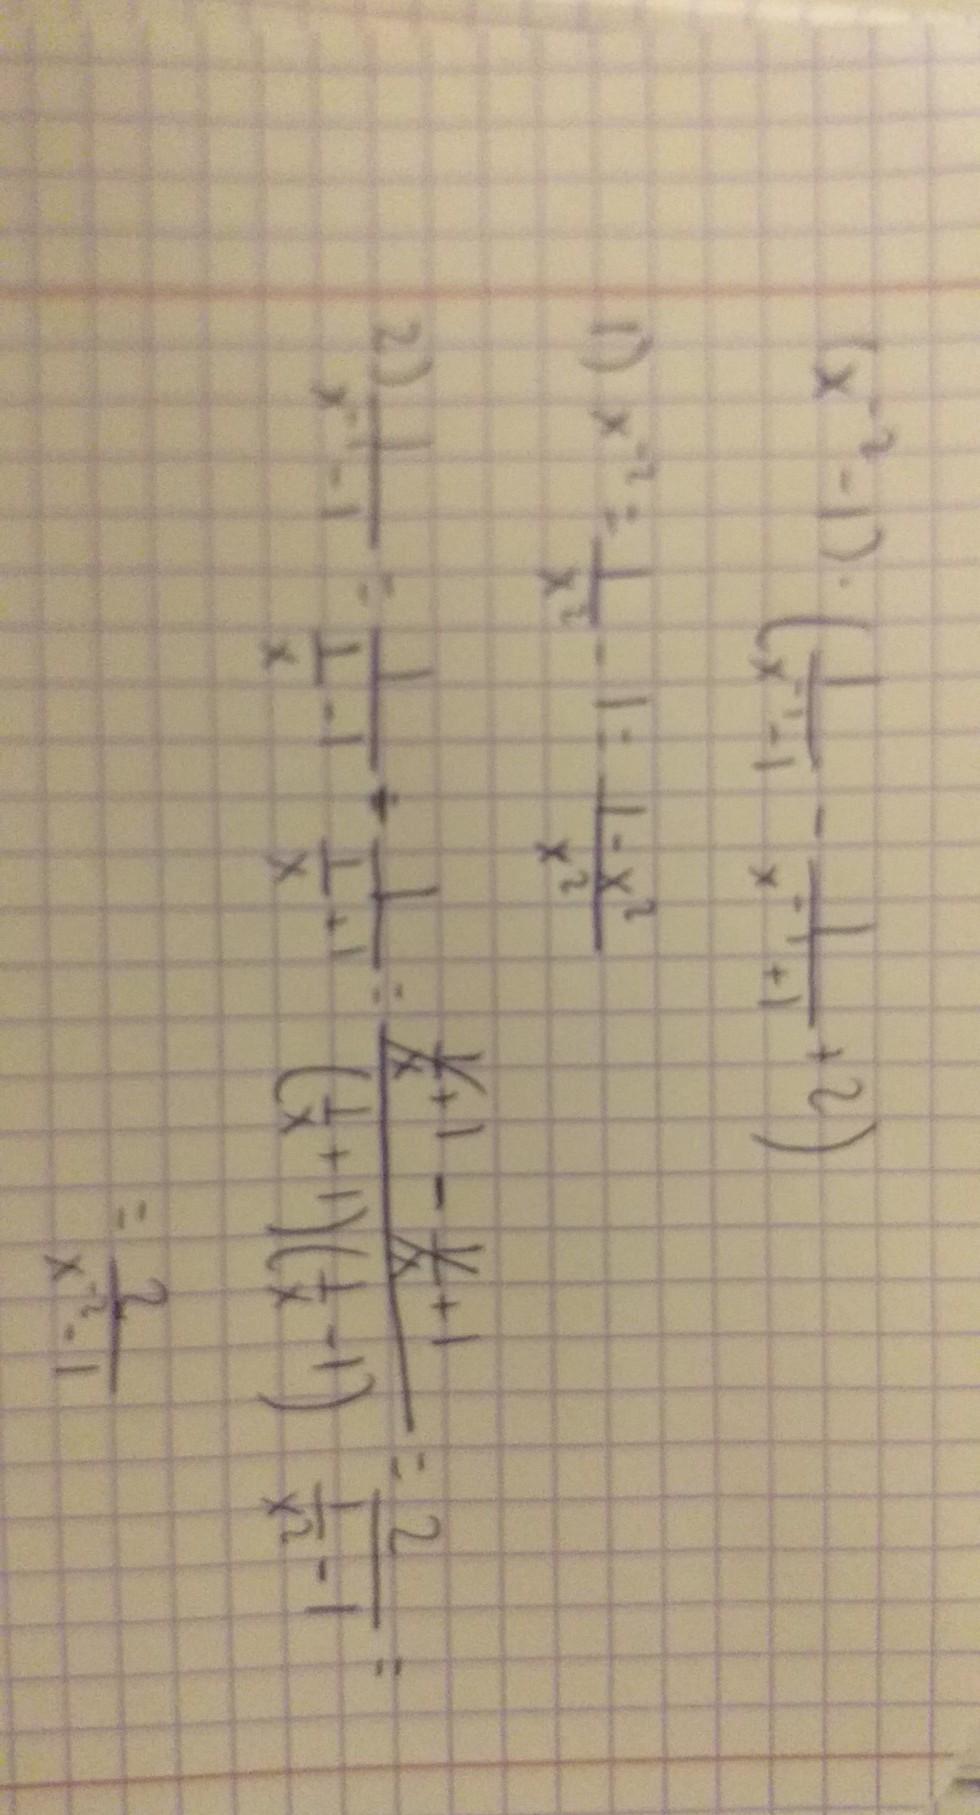 (x⁻² - 1) · (1/(x⁻¹ - 1) - 1/(x⁻¹ + 1) + 2)
1) x⁻² = 1/x² - 1 = (1 - x²)/x²
2) 1/(x⁻¹ - 1) = 1/(1/x - 1) + 1/(1/x + 1) = (1/x + 1 - 1/x + 1)/((1/x + 1)(1/x - 1)) = 2/(1/x² - 1) =
= 2/(x⁻² - 1)